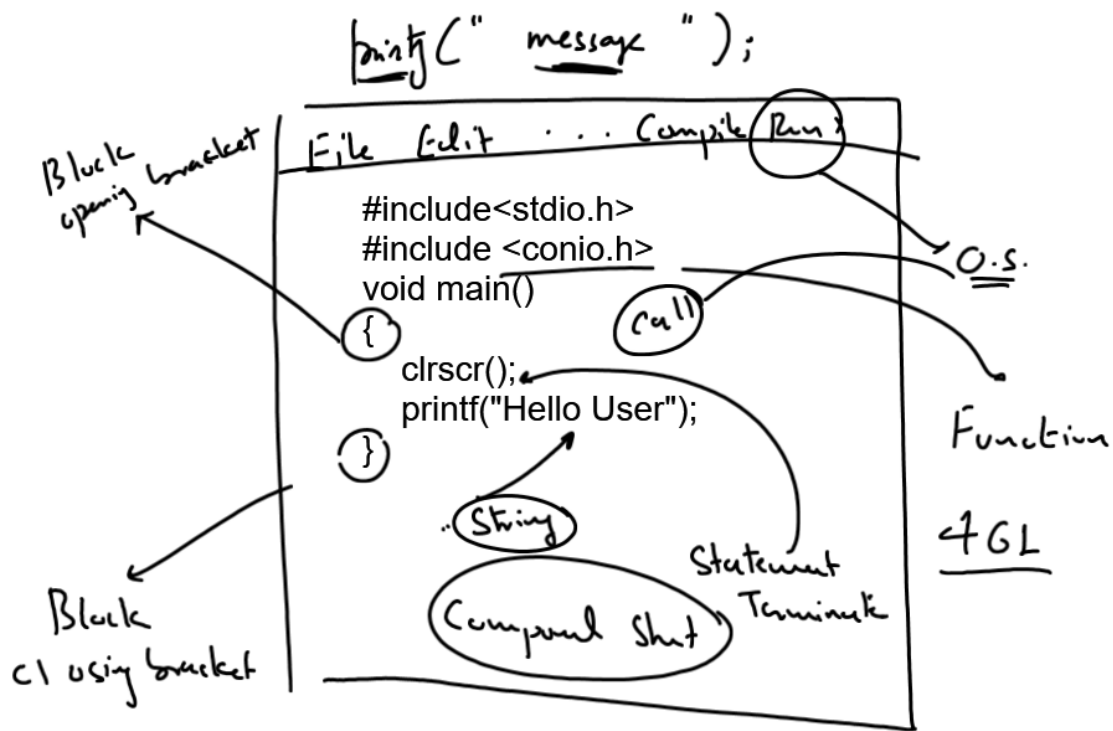 printf(" message ");
File Edit ... Compile Run
Block
opening bracket
#include<stdio.h>
#include <conio.h>
void main()
{
clrscr();
printf("Hello User");
}
Call
O.S.
Function
4GL
String
Statement
Terminate
Compound Stmt
Block
closing bracket